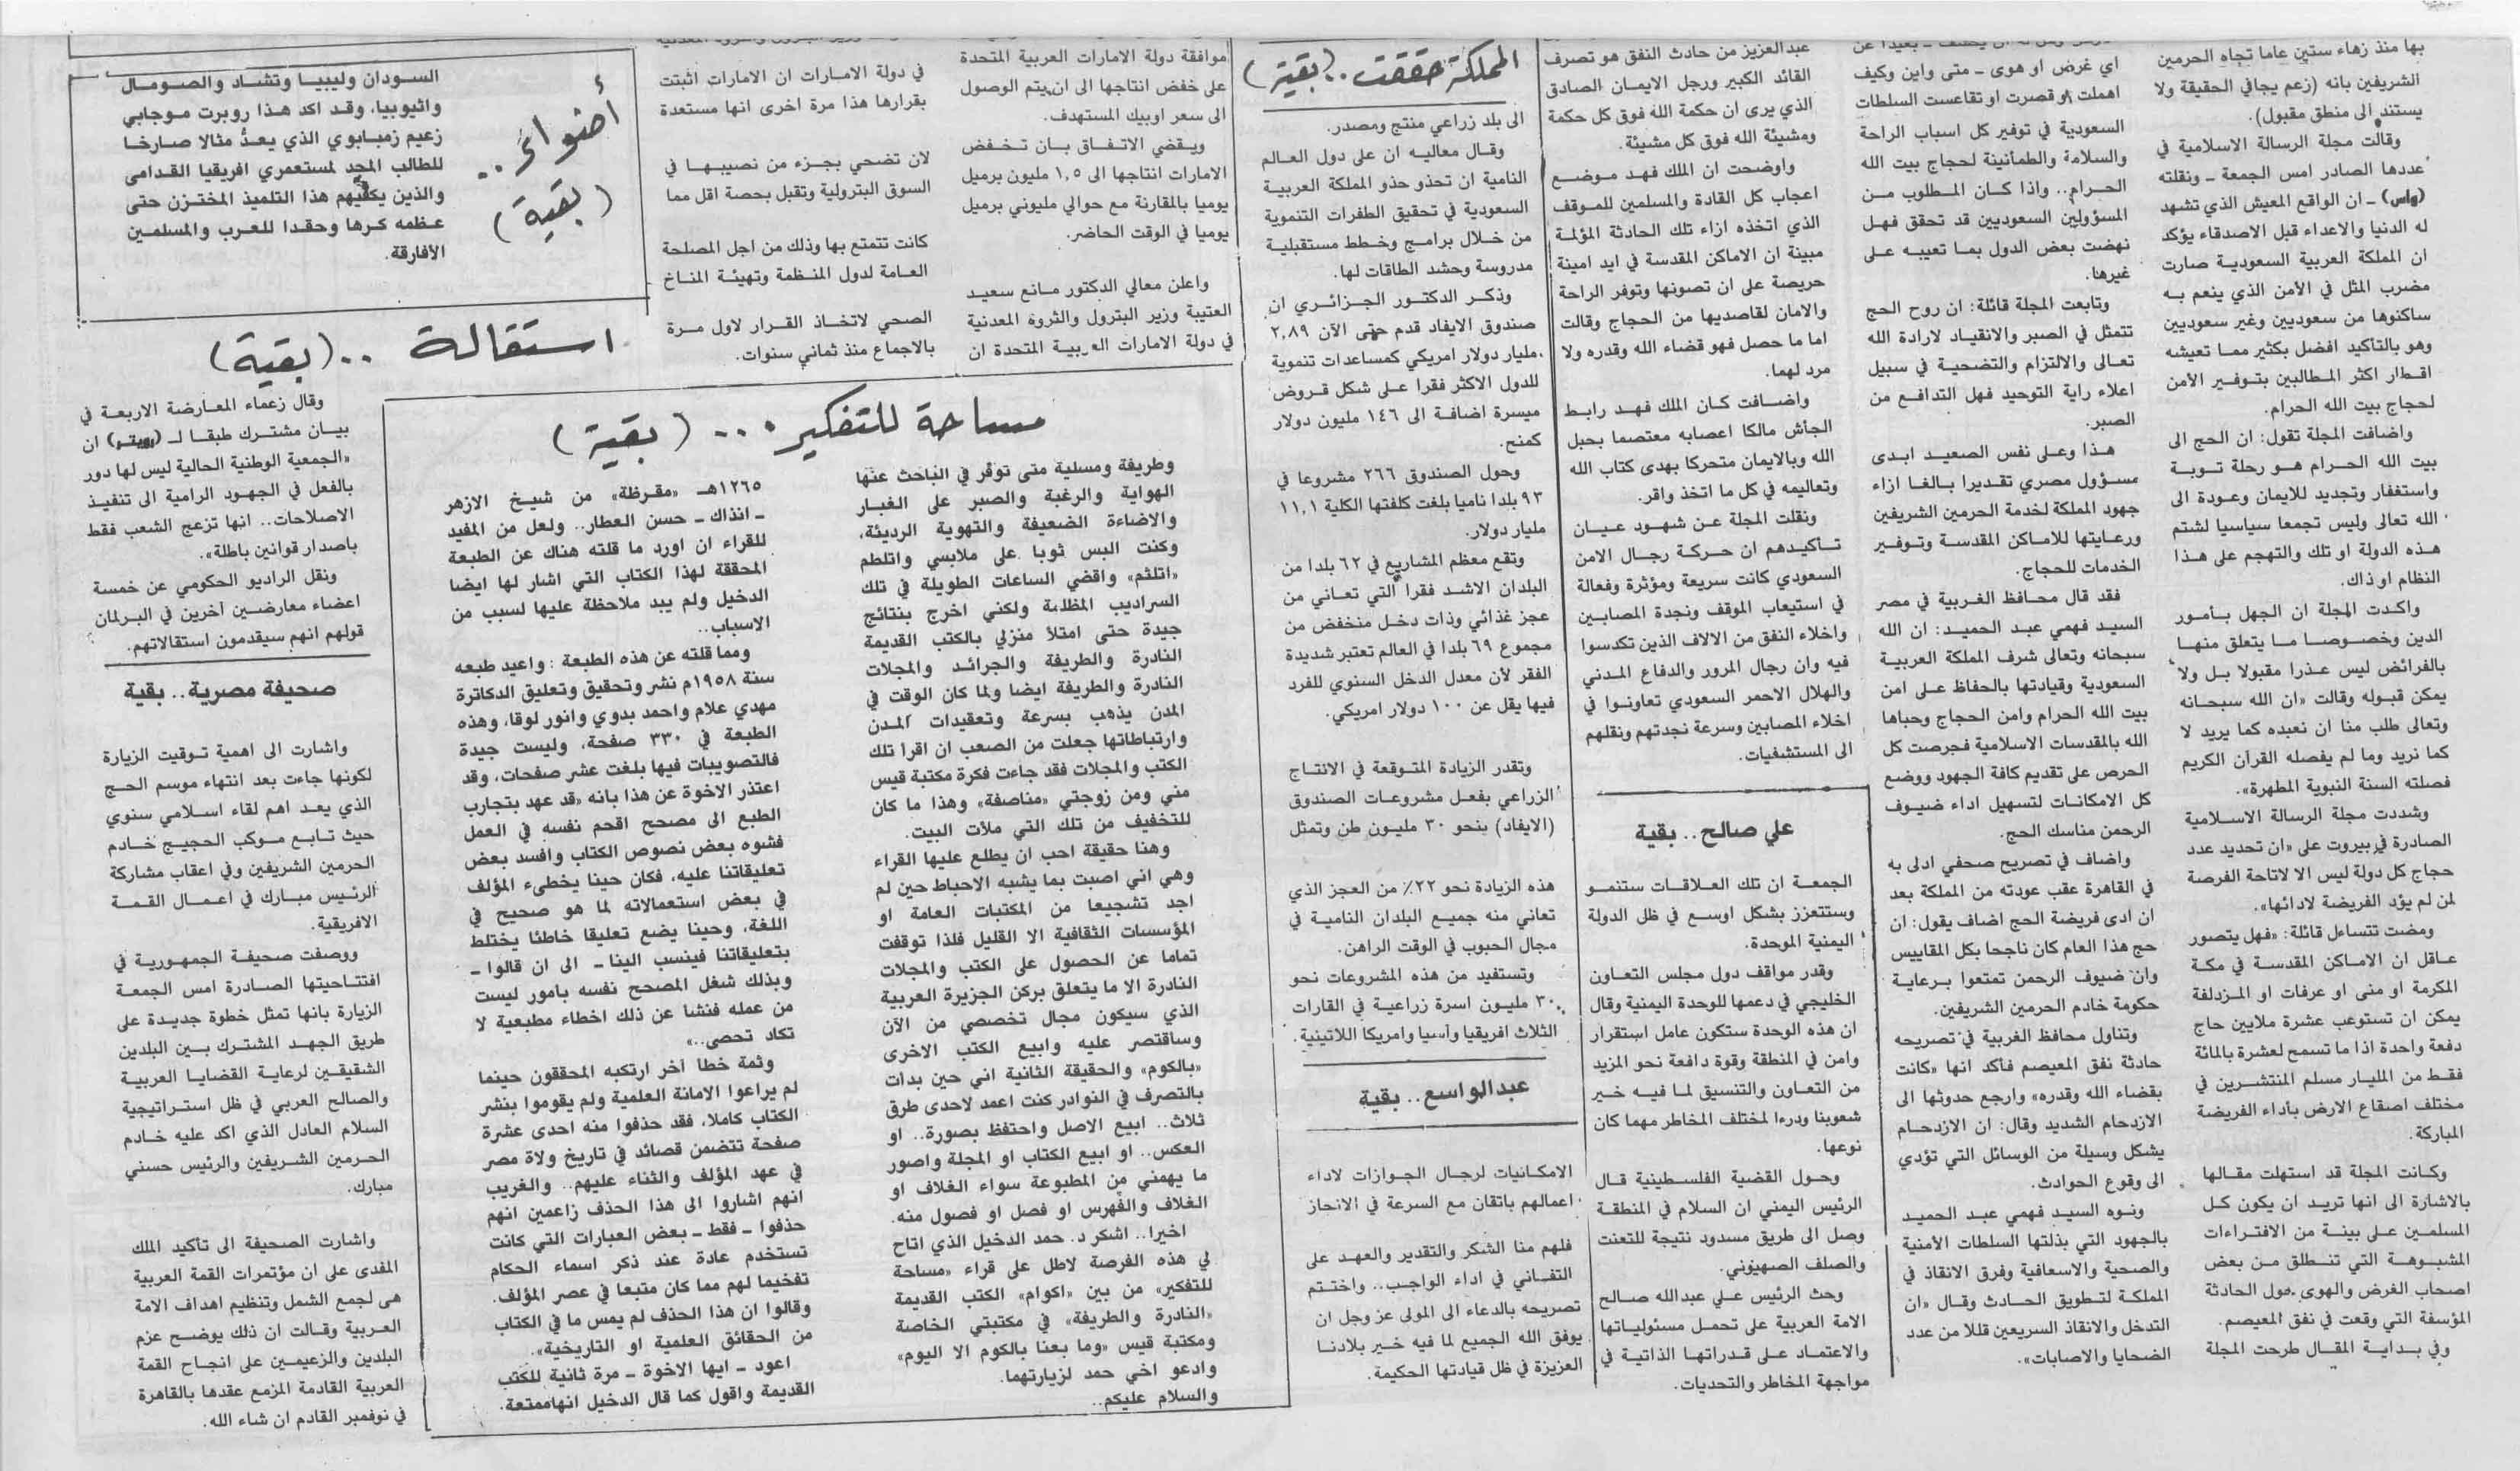 بها منذ زهاء ستين عاما تجاه الحرمين
الشريفين بانه (زعم يجافي الحقيقة ولا
يستند الى منطق مقبول).
وقالت مجلة الرسالة الاسلامية في
عددها الصادر امس الجمعة ـ ونقلته
(واس) ـ ان الواقع المعيش الذي تشهد
له الدنيا والاعداء قبل الاصدقاء يؤكد
ان المملكة العربية السعودية صارت
مضرب المثل في الأمن الذي ينعم به
ساكنوها من سعوديين وغير سعوديين
وهو بالتأكيد افضل بكثير مما تعيشه
اقطار اكثر المطالبين بتوفير الأمن
لحجاج بيت الله الحرام.
واضافت المجلة تقول: ان الحج الى
بيت الله الحرام هو رحلة توبة
واستغفار وتجديد للايمان وعودة الى
الله تعالى وليس تجمعا سياسيا لشتم
هذه الدولة او تلك والتهجم على هذا
النظام او ذاك.
واكدت المجلة ان الجهل بأمور
الدين وخصوصا ما يتعلق منها
بالفرائض ليس عذرا مقبولا بل ولا
يمكن قبوله وقالت «ان الله سبحانه
وتعالى طلب منا ان نعبده كما يريد لا
كما نريد وما لم يفصله القرآن الكريم
فصلته السنة النبوية المطهرة».
وشددت مجلة الرسالة الاسلامية
الصادرة في بيروت على «ان تحديد عدد
حجاج كل دولة ليس الا لاتاحة الفرصة
لمن لم يؤد الفريضة لادائها».
ومضت تتساءل قائلة: «فهل يتصور
عاقل ان الاماكن المقدسة في مكة
المكرمة او منى او عرفات او المزدلفة
يمكن ان تستوعب عشرة ملايين حاج
دفعة واحدة اذا ما تسمح لعشرة بالمائة
فقط من المليار مسلم المنتشرين في
مختلف اصقاع الارض بأداء الفريضة
المباركة.
وكانت المجلة قد استهلت مقالها
بالاشارة الى انها تريد ان يكون كل
المسلمين على بينة من الافتراءات
المشبوهة التي تنطلق من بعض
اصحاب الغرض والهوى حول الحادثة
المؤسفة التي وقعت في نفق المعيصم.
وفي بداية المقال طرحت المجلة
اي غرض او هوى ـ متى واين وكيف
اهملت او قصرت او تقاعست السلطات
السعودية في توفير كل اسباب الراحة
والسلامة والطمأنينة لحجاج بيت الله
الحرام.. واذا كان المطلوب من
المسؤولين السعوديين قد تحقق فهل
نهضت بعض الدول بما تعيبه على
غيرها.
وتابعت المجلة قائلة: ان روح الحج
تتمثل في الصبر والانقياد لارادة الله
تعالى والالتزام والتضحية في سبيل
اعلاء راية التوحيد فهل التدافع من
الصبر.
هذا وعلى نفس الصعيد ابدى
مسؤول مصري تقديرا بالغا ازاء
جهود المملكة لخدمة الحرمين الشريفين
ورعايتها للاماكن المقدسة وتوفير
الخدمات للحجاج.
فقد قال محافظ الغربية في مصر
السيد فهمي عبد الحميد: ان الله
سبحانه وتعالى شرف المملكة العربية
السعودية وقيادتها بالحفاظ على امن
بيت الله الحرام وامن الحجاج وحباها
الله بالمقدسات الاسلامية فحرصت كل
الحرص على تقديم كافة الجهود ووضع
كل الامكانات لتسهيل اداء ضيوف
الرحمن مناسك الحج.
واضاف في تصريح صحفي ادلى به
في القاهرة عقب عودته من المملكة بعد
ان ادى فريضة الحج اضاف يقول: ان
حج هذا العام كان ناجحا بكل المقاييس
وان ضيوف الرحمن تمتعوا برعاية
حكومة خادم الحرمين الشريفين.
وتناول محافظ الغربية في تصريحه
حادثة نفق المعيصم فأكد انها «كانت
بقضاء الله وقدره» وارجع حدوثها الى
الازدحام الشديد وقال: ان الازدحام
يشكل وسيلة من الوسائل التي تؤدي
الى وقوع الحوادث.
ونوه السيد فهمي عبد الحميد
بالجهود التي بذلتها السلطات الأمنية
والصحية والاسعافية وفرق الانقاذ في
المملكة لتطويق الحادث وقال «ان
التدخل والانقاذ السريعين قللا من عدد
الضحايا والاصابات».
عبدالعزيز من حادث النفق هو تصرف
القائد الكبير ورجل الايمان الصادق
الذي يرى ان حكمة الله فوق كل حكمة
ومشيئة الله فوق كل مشيئة.
واوضحت ان الملك فهد موضع
اعجاب كل القادة والمسلمين للموقف
الذي اتخذه ازاء تلك الحادثة المؤلمة
مبينة ان الاماكن المقدسة في ايد امينة
حريصة على ان تصونها وتوفر الراحة
والامان لقاصديها من الحجاج وقالت
اما ما حصل فهو قضاء الله وقدره ولا
مرد لهما.
واضافت كان الملك فهد رابط
الجأش مالكا اعصابه معتصما بحبل
الله وبالايمان متحركا بهدى كتاب الله
وتعاليمه في كل ما اتخذ واقر.
ونقلت المجلة عن شهود عيان
تأكيدهم ان حركة رجال الامن
السعودي كانت سريعة ومؤثرة وفعالة
في استيعاب الموقف ونجدة المصابين
واخلاء النفق من الالاف الذين تكدسوا
فيه وان رجال المرور والدفاع المدني
والهلال الاحمر السعودي تعاونوا في
اخلاء المصابين وسرعة نجدتهم ونقلهم
الى المستشفيات.
علي صالح.. بقية
الجمعة ان تلك العلاقات ستنمو
وستتعزز بشكل اوسع في ظل الدولة
اليمنية الموحدة.
وقدر مواقف دول مجلس التعاون
الخليجي في دعمها للوحدة اليمنية وقال
ان هذه الوحدة ستكون عامل استقرار
وامن في المنطقة وقوة دافعة نحو المزيد
من التعاون والتنسيق لما فيه خير
شعوبنا ودرءا لمختلف المخاطر مهما كان
نوعها.
وحول القضية الفلسطينية قال
الرئيس اليمني ان السلام في المنطقة
وصل الى طريق مسدود نتيجة للتعنت
والصلف الصهيوني.
وحث الرئيس علي عبدالله صالح
الامة العربية على تحمل مسئولياتها
والاعتماد على قدراتها الذاتية في
مواجهة المخاطر والتحديات.
المملكة حققت.. (بقية)
الى بلد زراعي منتج ومصدر.
وقال معاليه ان على دول العالم
النامية ان تحذو حذو المملكة العربية
السعودية في تحقيق الطفرات التنموية
من خلال برامج وخطط مستقبلية
مدروسة وحشد الطاقات لها.
وذكر الدكتور الجزائري ان
صندوق الايفاد قدم حتى الآن ٢,٨٩
مليار دولار امريكي كمساعدات تنموية
للدول الاكثر فقرا على شكل قروض
ميسرة اضافة الى ١٤٦ مليون دولار
كمنح.
وحول الصندوق ٢٦٦ مشروعا في
٩٣ بلدا ناميا بلغت كلفتها الكلية ١١,١
مليار دولار.
وتقع معظم المشاريع في ٦٢ بلدا من
البلدان الاشد فقرا التي تعاني من
عجز غذائي وذات دخل منخفض من
مجموع ٦٩ بلدا في العالم تعتبر شديدة
الفقر لأن معدل الدخل السنوي للفرد
فيها يقل عن ١٠٠ دولار امريكي.
وتقدر الزيادة المتوقعة في الانتاج
الزراعي بفعل مشروعات الصندوق
(الايفاد) بنحو ٣٠ مليون طن وتمثل
هذه الزيادة نحو ٢٢٪ من العجز الذي
تعاني منه جميع البلدان النامية في
مجال الحبوب في الوقت الراهن.
وتستفيد من هذه المشروعات نحو
٣٠ مليون اسرة زراعية في القارات
الثلاث افريقيا وآسيا وامريكا اللاتينية.
عبدالواسع.. بقية
الامكانيات لرجال الجوازات لاداء
اعمالهم باتقان مع السرعة في الانجاز
فلهم منا الشكر والتقدير والعهد على
التفاني في اداء الواجب.. واختتم
تصريحه بالدعاء الى المولى عز وجل ان
يوفق الله الجميع لما فيه خير بلادنا
العزيزة في ظل قيادتها الحكيمة.
موافقة دولة الامارات العربية المتحدة
على خفض انتاجها الى ان يتم الوصول
الى سعر اوبيك المستهدف.
ويقضي الاتفاق بان تخفض
الامارات انتاجها الى ١,٥ مليون برميل
يوميا بالمقارنة مع حوالي مليوني برميل
يوميا في الوقت الحاضر.
واعلن معالي الدكتور مانع سعيد
العتيبة وزير البترول والثروة المعدنية
في دولة الامارات العربية المتحدة ان
في دولة الامارات ان الامارات اثبتت
بقرارها هذا مرة اخرى انها مستعدة
لان تضحي بجزء من نصيبها في
السوق البترولية وتقبل بحصة اقل مما
كانت تتمتع بها وذلك من اجل المصلحة
العامة لدول المنظمة وتهيئة المناخ
الصحي لاتخاذ القرار لاول مرة
بالاجماع منذ ثماني سنوات.
أضواء..
(بقية)
السودان وليبيا وتشاد والصومال
واثيوبيا، وقد اكد هذا روبرت موجابي
زعيم زمبابوي الذي يعدُّ مثالا صارخا
للطالب المجد لمستعمري افريقيا القدامى
والذين يكفيهم هذا التلميذ المختزن حتى
عظمه كرها وحقدا للعرب والمسلمين
الأفارقة.
استقالة .. (بقية)
وقال زعماء المعارضة الاربعة في
بيان مشترك طبقا لـ (رويتر) ان
«الجمعية الوطنية الحالية ليس لها دور
بالفعل في الجهود الرامية الى تنفيذ
الاصلاحات.. انها تزعج الشعب فقط
باصدار قوانين باطلة».
ونقل الراديو الحكومي عن خمسة
اعضاء معارضين آخرين في البرلمان
قولهم انهم سيقدمون استقالاتهم.
صحيفة مصرية.. بقية
واشارت الى اهمية توقيت الزيارة
لكونها جاءت بعد انتهاء موسم الحج
الذي يعد اهم لقاء اسلامي سنوي
حيث تابع موكب الحجيج خادم
الحرمين الشريفين وفي اعقاب مشاركة
الرئيس مبارك في اعمال القمة
الافريقية.
ووصفت صحيفة الجمهورية في
افتتاحيتها الصادرة امس الجمعة
الزيارة بانها تمثل خطوة جديدة على
طريق الجهد المشترك بين البلدين
الشقيقين لرعاية القضايا العربية
والصالح العربي في ظل استراتيجية
السلام العادل الذي اكد عليه خادم
الحرمين الشريفين والرئيس حسني
مبارك.
واشارت الصحيفة الى تأكيد الملك
المفدى على ان مؤتمرات القمة العربية
هى لجمع الشمل وتنظيم اهداف الامة
العربية وقالت ان ذلك يوضح عزم
البلدين والزعيمين على انجاح القمة
العربية القادمة المزمع عقدها بالقاهرة
في نوفمبر القادم ان شاء الله.
مساحة للتفكير... (بقية)
وطريفة ومسلية متى توفّر في الباحث عنها
الهواية والرغبة والصبر على الغبار
والاضاءة الضعيفة والتهوية الرديئة،
وكنت البس ثوبا على ملابسي واتلطم
«اتلثم» واقضي الساعات الطويلة في تلك
السراديب المظلمة ولكني اخرج بنتائج
جيدة حتى امتلأ منزلي بالكتب القديمة
النادرة والطريفة والجرائد والمجلات
النادرة والطريفة ايضا ولما كان الوقت في
المدن يذهب بسرعة وتعقيدات المدن
وارتباطاتها جعلت من الصعب ان اقرأ تلك
الكتب والمجلات فقد جاءت فكرة مكتبة قيس
مني ومن زوجتي «مناصفة» وهذا ما كان
للتخفيف من تلك التي ملأت البيت.
وهنا حقيقة احب ان يطلع عليها القراء
وهي اني اصبت بما يشبه الاحباط حين لم
اجد تشجيعا من المكتبات العامة او
المؤسسات الثقافية الا القليل فلذا توقفت
تماما عن الحصول على الكتب والمجلات
النادرة الا ما يتعلق بركن الجزيرة العربية
الذي سيكون مجال تخصصي من الآن
وساقتصر عليه وابيع الكتب الاخرى
«بالكوم» والحقيقة الثانية اني حين بدات
بالتصرف في النوادر كنت اعمد لاحدى طرق
ثلاث.. ابيع الاصل واحتفظ بصورة.. او
العكس.. او ابيع الكتاب او المجلة واصور
ما يهمني من المطبوعة سواء الغلاف او
الغلاف والفهرس او فصل او فصول منه.
اخيرا.. اشكر د. حمد الدخيل الذي اتاح
لي هذه الفرصة لاطل على قراء «مساحة
للتفكير» من بين «اكوام» الكتب القديمة
«النادرة والطريفة» في مكتبتي الخاصة
ومكتبة قيس «وما بعنا بالكوم الا اليوم»
وادعو اخي حمد لزيارتهما.
والسلام عليكم..
١٢٦٥هـ «مقرظة» من شيخ الازهر
ـ انذاك ـ حسن العطار.. ولعل من المفيد
للقراء ان اورد ما قلته هناك عن الطبعة
المحققة لهذا الكتاب التي اشار لها ايضا
الدخيل ولم يبد ملاحظة عليها لسبب من
الاسباب..
ومما قلته عن هذه الطبعة: واعيد طبعه
سنة ١٩٥٨م نشر وتحقيق وتعليق الدكاترة
مهدي علام واحمد بدوي وانور لوقا، وهذه
الطبعة في ٣٣٠ صفحة، وليست جيدة
فالتصويبات فيها بلغت عشر صفحات، وقد
اعتذر الاخوة عن هذا بانه «قد عهد بتجارب
الطبع الى مصحح اقحم نفسه في العمل
فشوه بعض نصوص الكتاب وافسد بعض
تعليقاتنا عليه، فكان حينا يخطىء المؤلف
في بعض استعمالاته لما هو صحيح في
اللغة، وحينا يضع تعليقا خاطئا يختلط
بتعليقاتنا فينسب الينا ـ الى ان قالوا ـ
وبذلك شغل المصحح نفسه بامور ليست
من عمله فنشا عن ذلك اخطاء مطبعية لا
تكاد تحصى..»
وثمة خطا آخر ارتكبه المحققون حينما
لم يراعوا الامانة العلمية ولم يقوموا بنشر
الكتاب كاملا، فقد حذفوا منه احدى عشرة
صفحة تتضمن قصائد في تاريخ ولاة مصر
في عهد المؤلف والثناء عليهم.. والغريب
انهم اشاروا الى هذا الحذف زاعمين انهم
حذفوا ـ فقط ـ بعض العبارات التي كانت
تستخدم عادة عند ذكر اسماء الحكام
تفخيما لهم مما كان متبعا في عصر المؤلف.
وقالوا ان هذا الحذف لم يمس ما في الكتاب
من الحقائق العلمية او التاريخية».
اعود ـ ايها الاخوة ـ مرة ثانية للكتب
القديمة واقول كما قال الدخيل انها ممتعة.